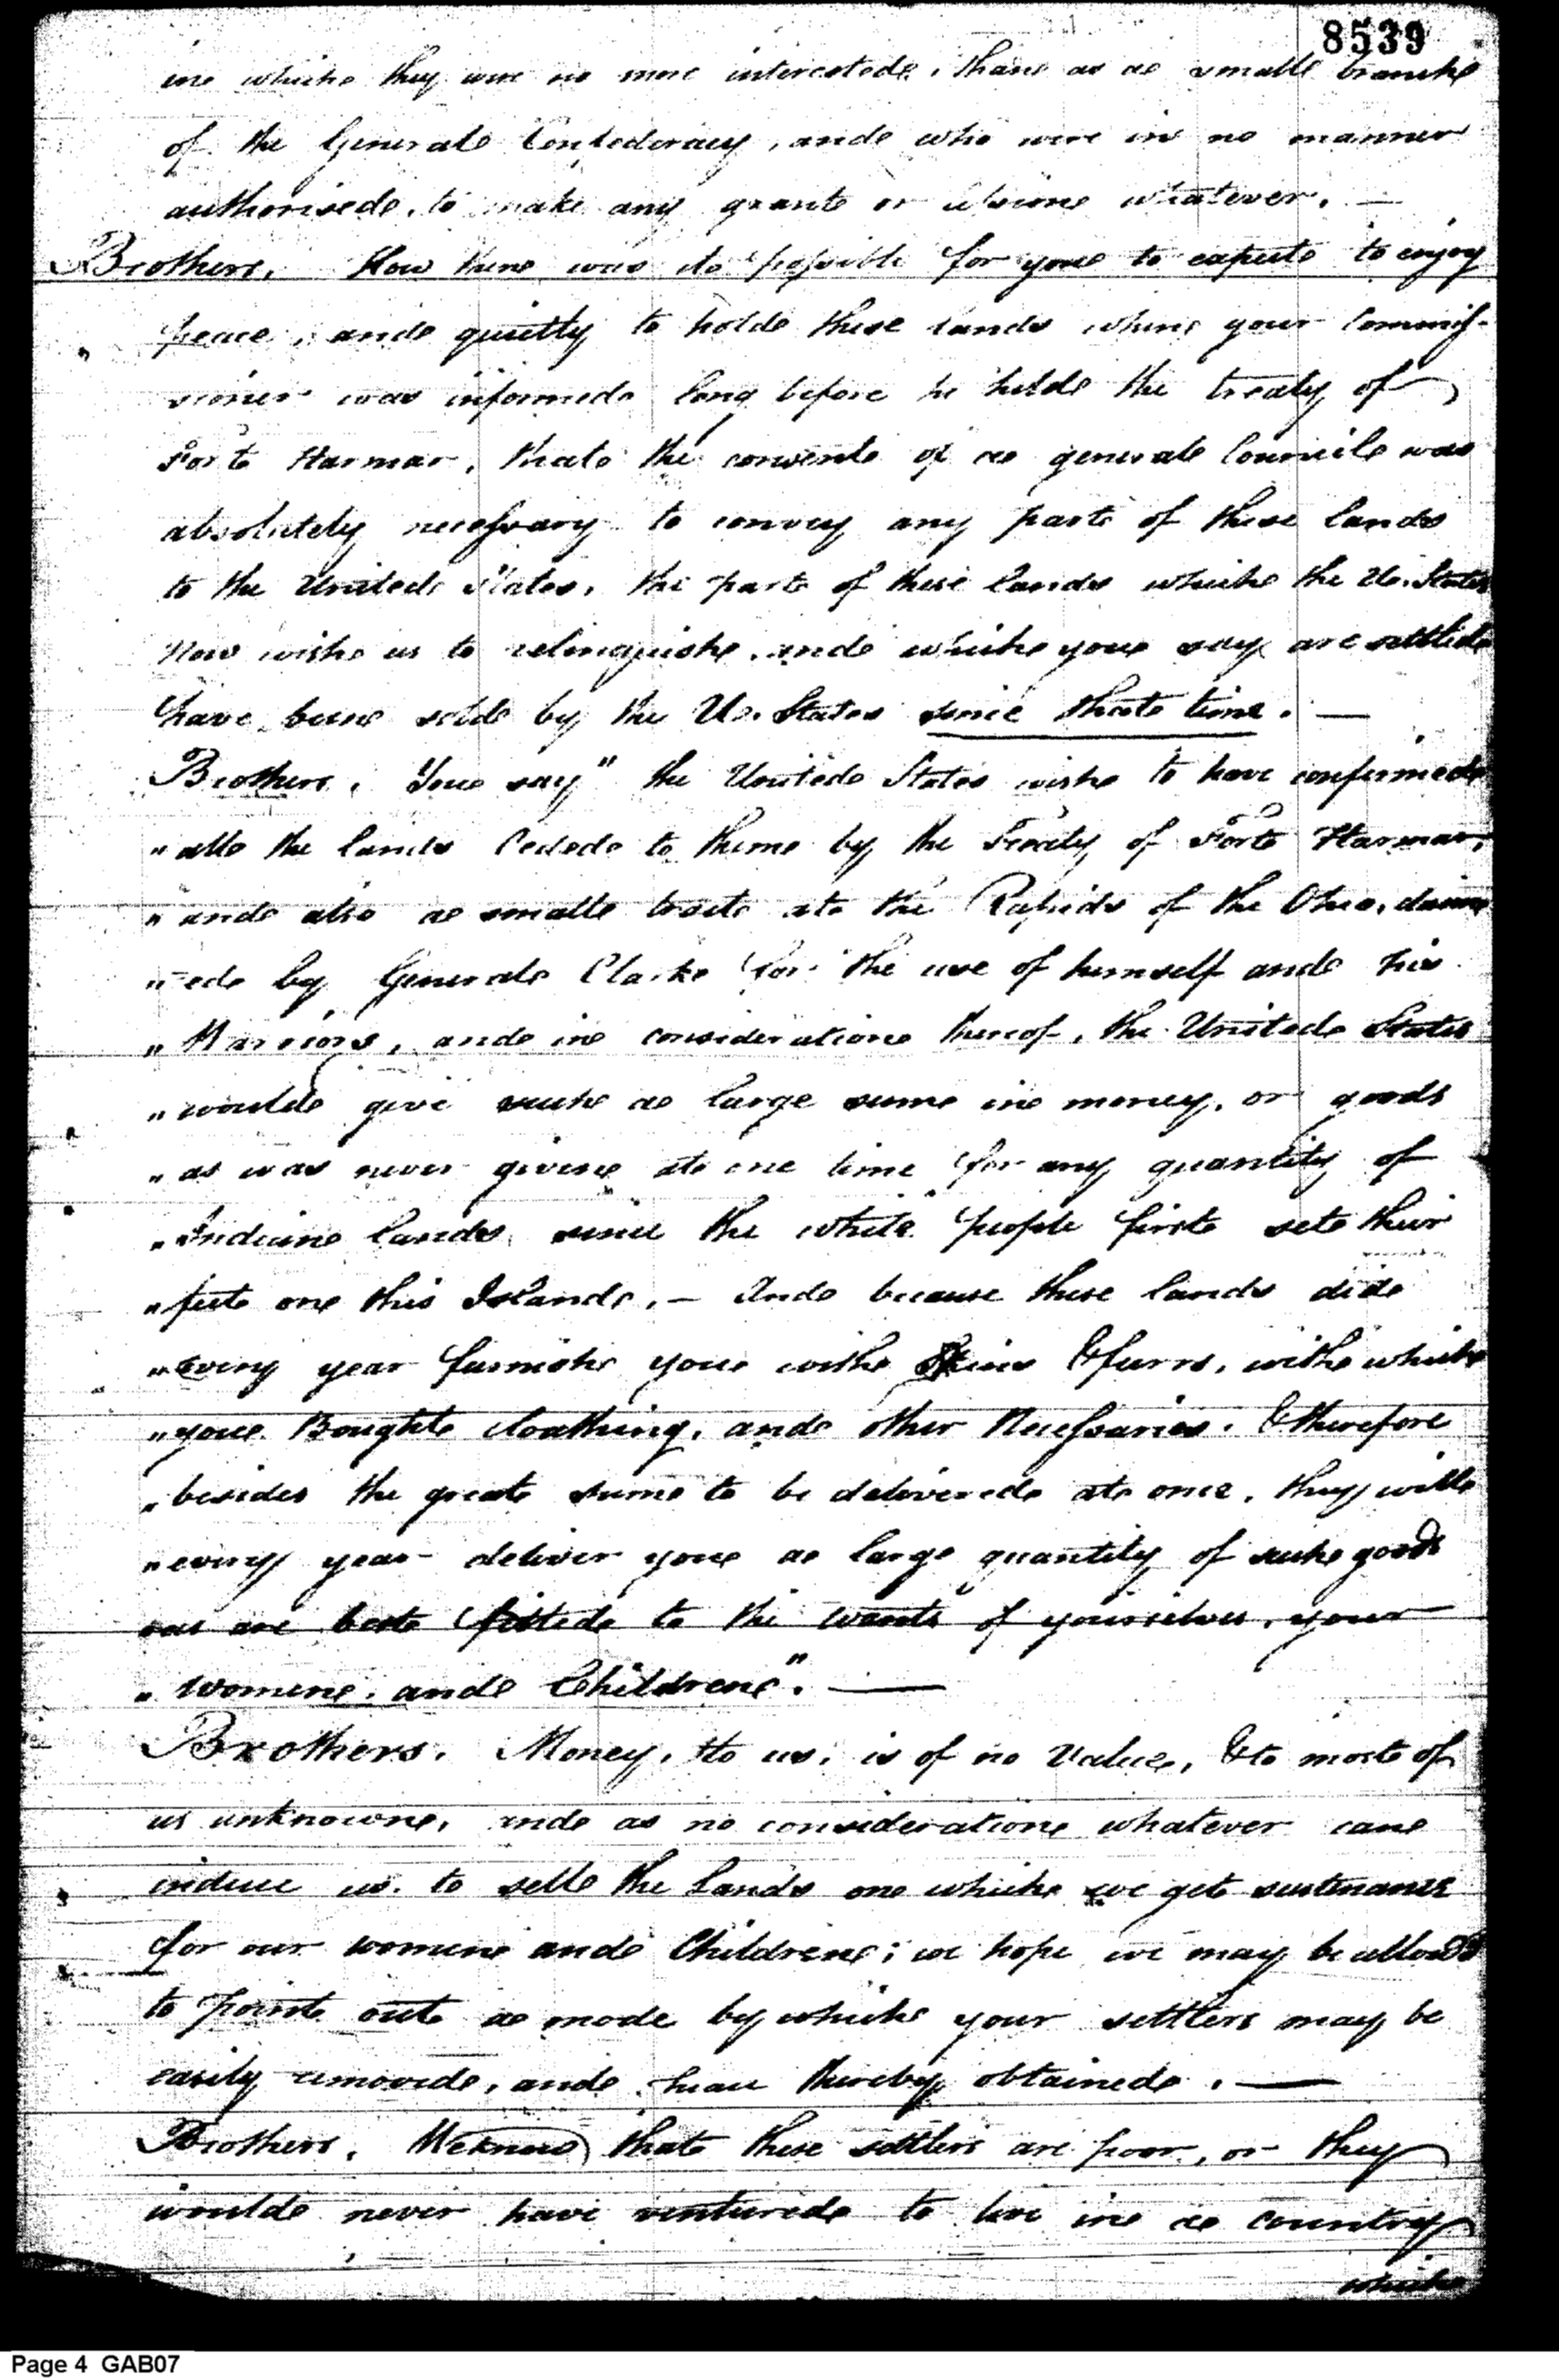 8539
in which they were no more interested, than as a small branch
of the General Confederacy, and who were in no manner
authorised, to make any grant or cession whatever. —
Brothers. How then was it possible for you to expect to enjoy
peace, and quietly to hold these lands when your Commis-
sioner was informed long before he held the treaty of
Fort Harmar, that the consent of a general Council was
absolutely necessary to convey any part of these lands
to the United States, the part of these lands which the U. States
Now wish us to relinquish, and which you say are settled
have been sold by the U. States since that time. —
Brothers. You say "the United States wish to have confirmed
" all the lands Ceded to them by the Treaty of Fort Harmar,
" and also a small tract at the Rapids of the Ohio, claim
" ed by General Clark for the use of himself and his
" Warriors, and in consideration thereof, the United States
" would give such a large sum in money, or goods
" as was never given at one time for any quantity of
" Indian lands, since the white people first set their
" feet on this Island. — And because these lands did
" every year furnish you with Skins & furrs, with which
" you Bought cloathing, and other Necessaries. & therefore
" besides the great sum to be delivered at once, they will
" every year deliver you a large quantity of such goods
" as are best fitted to the wants of yourselves, your
" women, and Children". —
Brothers. Money, to us, is of no Value, & to most of
us unknown, and as no consideration whatever can
induce us to sell the Lands on which we get sustenance
for our women and Children; we hope we may be allowed
to point out a mode by which your settlers may be
easily removed, and peace thereby obtained. —
Brothers. We know that these settlers are poor, or they
would never have ventured to live in a country
which
Page 4 GAB07